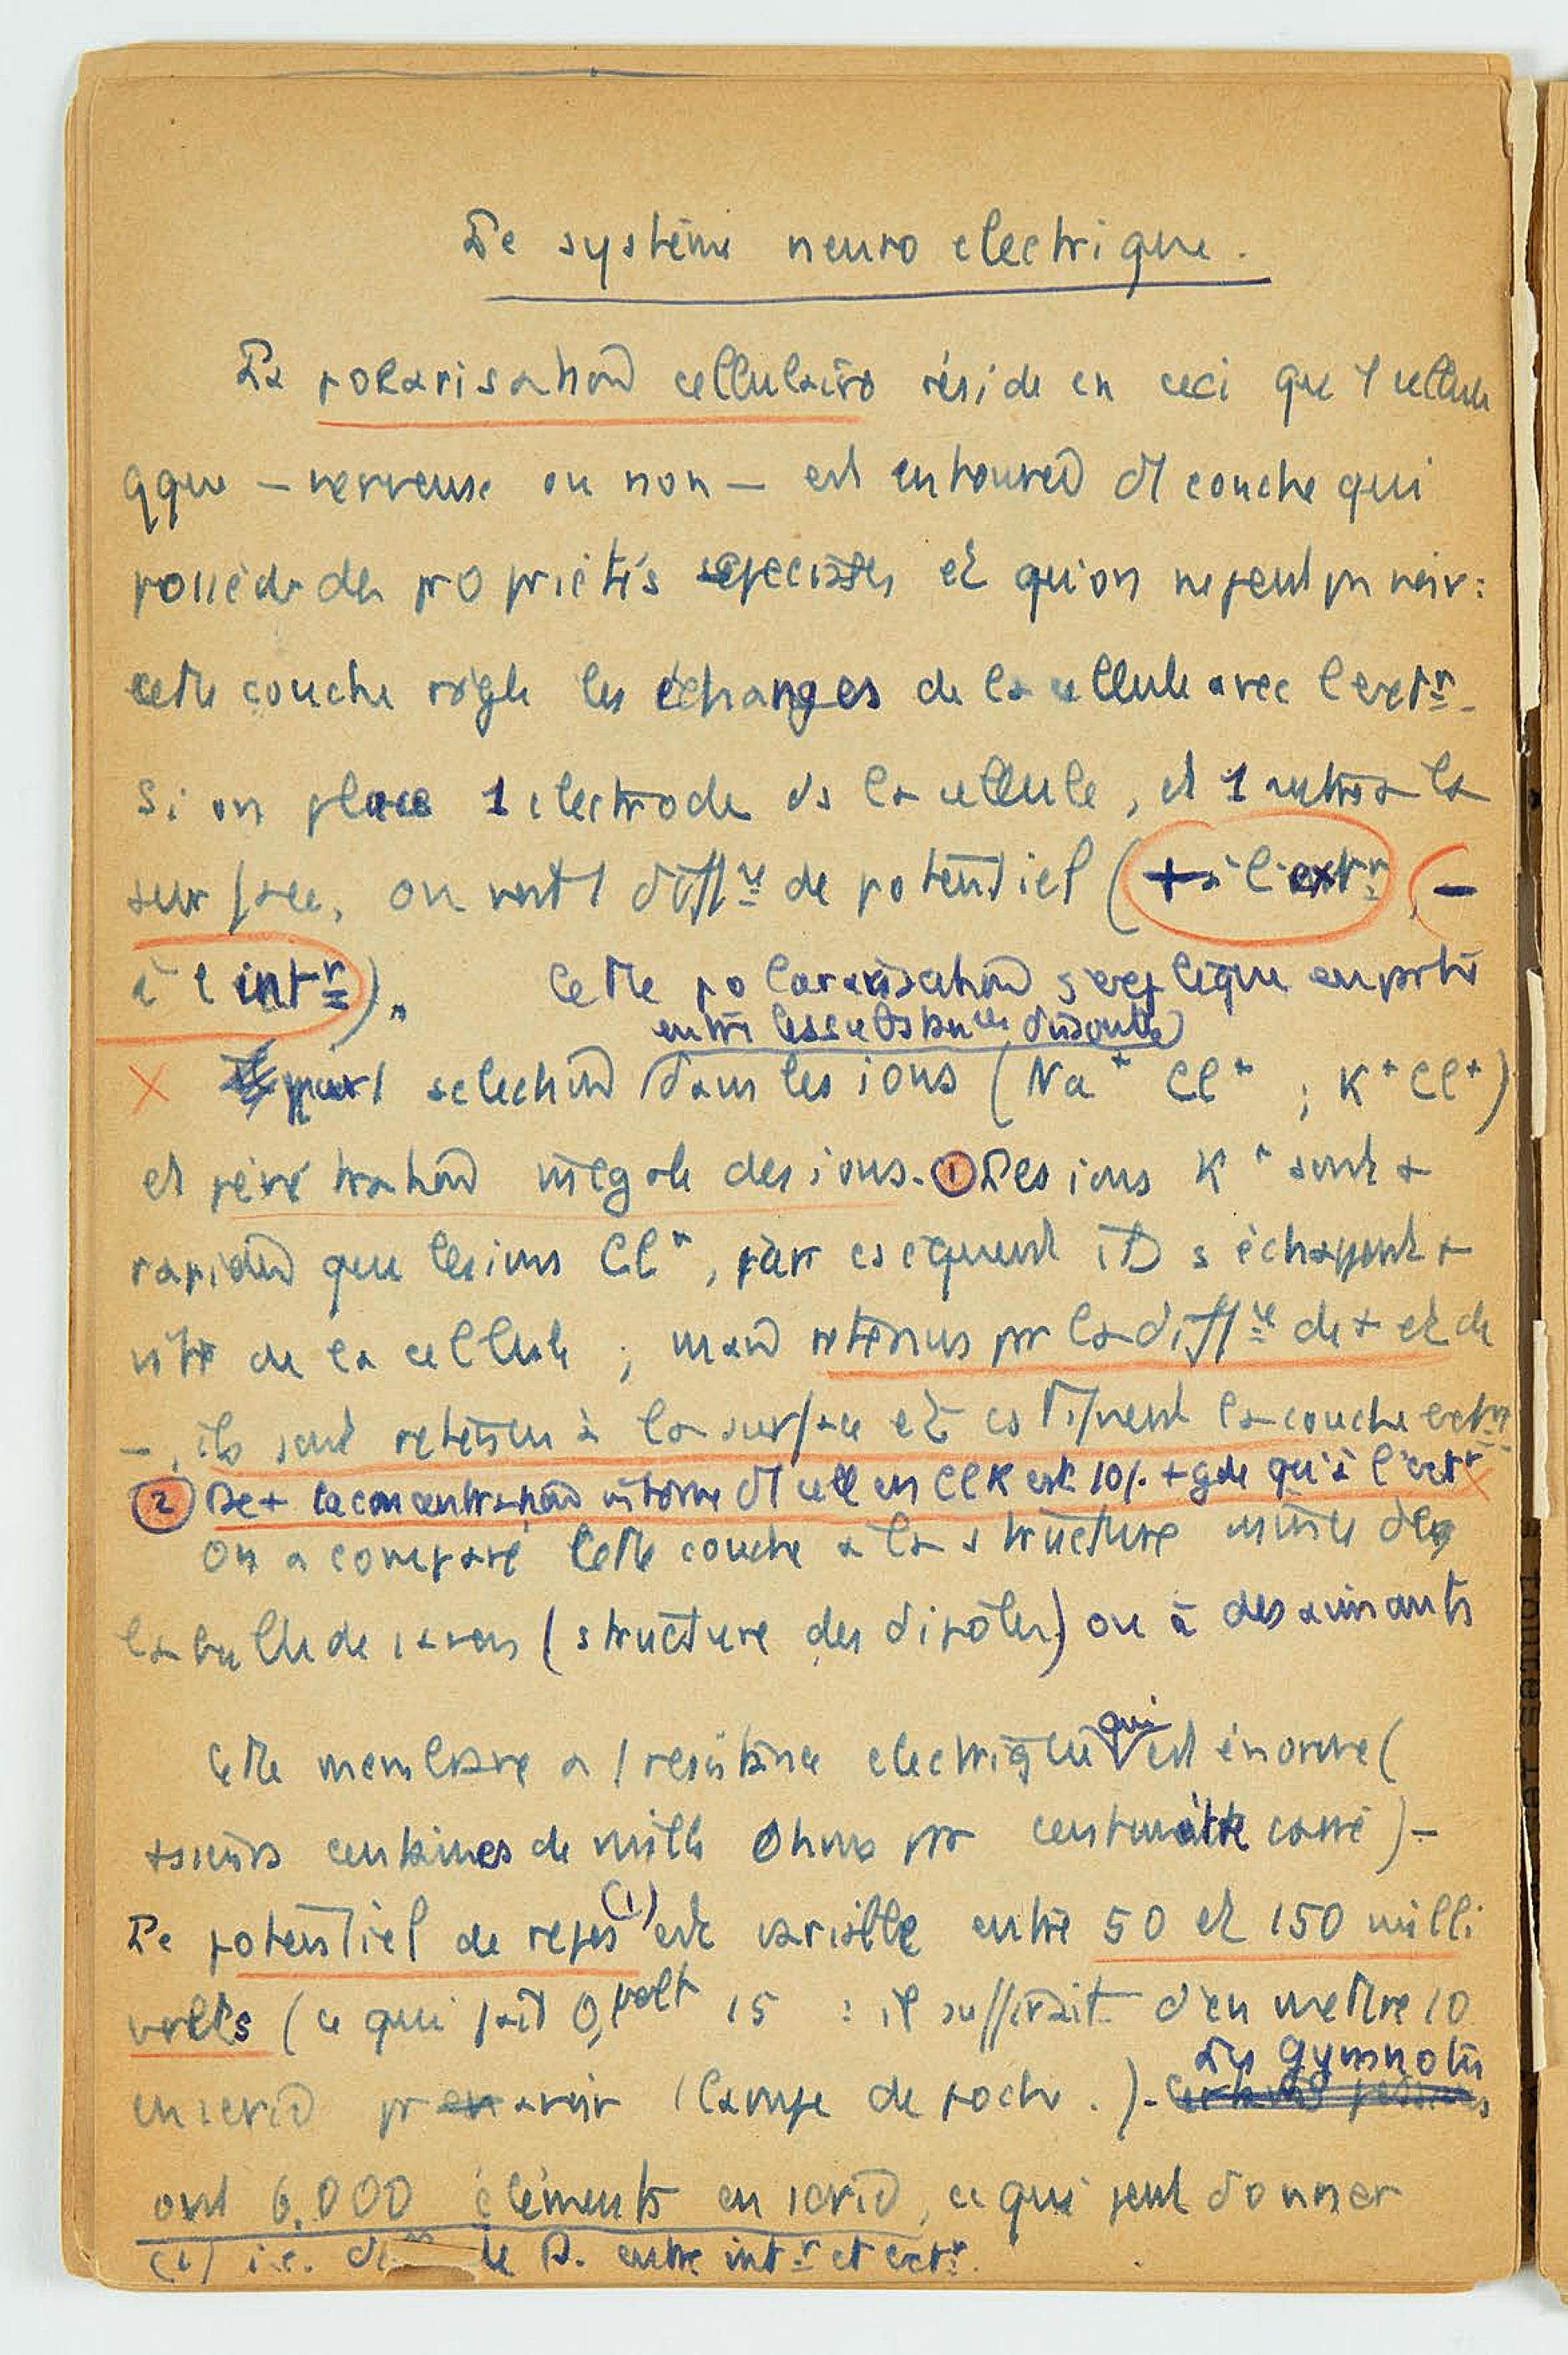 Le système neuro électrique.
La polarisation cellulaire réside en ceci que 1 cellule
qque – nerveuse ou non – est entourée d'1 couche qui
possède des propriétés spéciales et qu'on ne peut pas voir :
cette couche règle les échanges de la cellule avec l'extr.
Si on place 1 électrode ds la cellule, et 1 autre à la
surface, on voit 1 diffce de potentiel (+ à l'extr, –
à l'intr). Cette polararisation s'explique en partie
entre les substances dissoutes
par 1 sélection dans les ions (Na+ Cl+ ; K+ Cl+)
et pénétration inégale des ions. (1) Les ions K+ sont +
rapides que les ions Cl+, par cséquent ils s'échappent +
vite de la cellule ; mais retenus par la diffce de + et de
–, ils sont retenus à la surface et cstituent la couche extr.
(2) De + la concentration interne d'1 cell en ClK est 10/. + gde qu'à l'extr
On a comparé cette couche à la structure même de
la bulle de savon (structure des dipôles) ou à des aimants
Cette membrane a 1 résistance électrique qui est énorme (
+sieurs centaines de mille Ohms par centimètre carré) –
Le potentiel de repos (1) est variable entre 50 et 150 milli
volts (ce qui fait 0,volt 15 : il suffirait d'en mettre 10
en série pr en avoir 1 lampe de poche.) – Les Gymnotes
ont 6.000 éléments en série, ce qui peut donner
(1) i.e. de P. entre intr et extr.